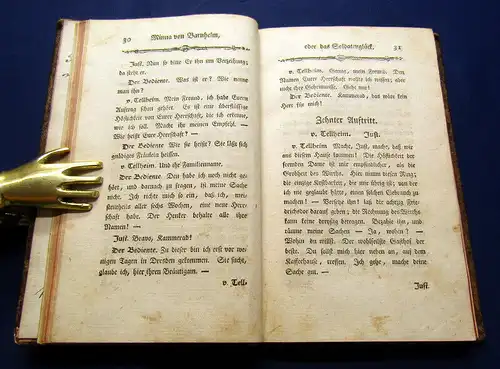 30 Minna von Barnhelm,
Just. Nun so bitte Er ihn um Verzeihung;
da steht er.
Der Bediente. Was ist er? Wie nennt
man ihn?
v. Tellheim. Mein Freund, ich habe Euern
Auftrag schon gehört. Es ist eine überflüssige
Höflichkeit von Eurer Herrschaft, die ich erkenne,
wie ich soll. Macht ihr meinen Empfehl. —
Wie heißt Eure Herrschaft? —
Der Bediente Wie sie heißt? Sie läßt sich
gnädiges Fräulein heissen.
v. Tellheim. Und ihr Familienname.
Der Bediente. Den habe ich noch nicht ge-
hört, und darnach zu fragen, ist meine Sache
nicht. Ich richte mich so ein, daß ich, mei-
stentheils aller sechs Wochen, eine neue Herr-
schaft habe. Der Henker behalte alle ihre
Namen! —
Just. Bravo, Kammerad!
Der Bediente. Zu dieser bin ich erst vor we-
nigen Tagen in Dresden gekommen. Sie sucht,
glaube ich, hier ihren Bräutigam. —
v. Tell-
oder das Soldatenglück. 31
v. Tellheim. Genug, mein Freund. Den
Namen Eurer Herrschaft wollte ich wissen; aber
nicht ihre Geheimnisse. Geht nur!
Der Bediente. Kammerad, das wäre kein
Herr für mich!
Zehnter Auftritt.
v. Tellheim. Just.
v. Tellheim Mache, Just, mache, daß wir
aus diesem Hause kommen! Die Höflichkeit der
fremden Dame ist mir empfindlicher, als die
Grobheit des Wirths. Hier nimm diesen Ring;
die einzige Kostbarkeit, die mir übrig ist; von der
ich nie geglaubt hätte, einen solchen Gebrauch zu
machen! — Versetze ihn! laß dir achtzig Frie-
drichsdor darauf geben; die Rechnung des Wirths
kann keine dreyßig betragen. Bezahle ihn, und
räume meine Sachen — Ja, wohin? —
Wohin du willst. Der wohlfeilste Gasthof der
beste. Du sollst mich hier neben an, auf dem
Kaffeehause, treffen. Ich gehe, mache deine
Sache gut. —
Just.